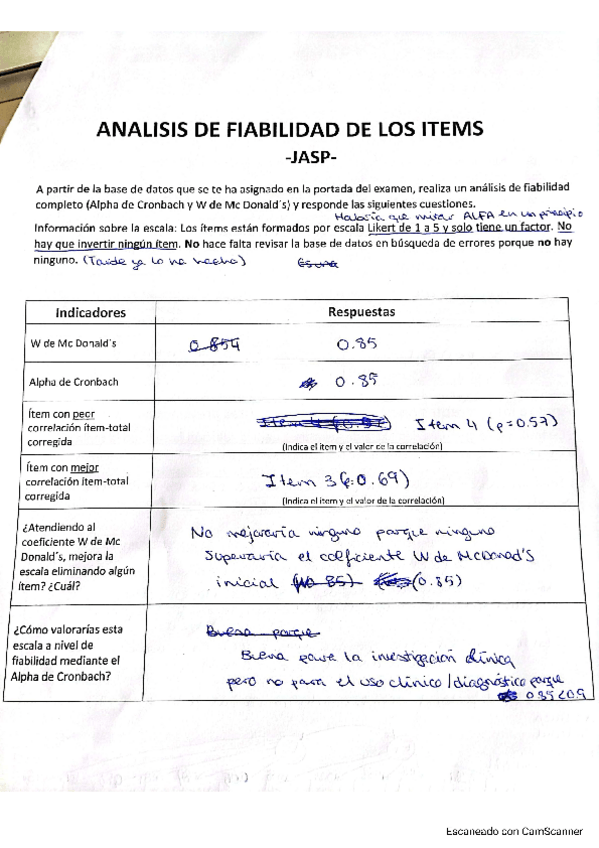 ANALISIS DE FIABILIDAD DE LOS ITEMS
-JASP-
A partir de la base de datos que se te ha asignado en la portada del examen, realiza un análisis de fiabilidad
completo (Alpha de Cronbach y W de Mc Donald´s) y responde las siguientes cuestiones.
Habría que mirar ALFA en un principio
Información sobre la escala: Los ítems están formados por escala Likert de 1 a 5 y solo tiene un factor. No
hay que invertir ningún ítem. No hace falta revisar la base de datos en búsqueda de errores porque no hay
ninguno. (Taide ya lo ha hecho)
Indicadores Respuestas
W de Mc Donald´s 0.854 0.85
Alpha de Cronbach 0.85
Ítem con peor
correlación ítem-total
corregida
Item 4 (p=0.57)
(Indica el ítem y el valor de la correlación)
Ítem con mejor
correlación ítem-total
corregida
Item 3 (p=0.69)
(Indica el ítem y el valor de la correlación)
¿Atendiendo al
coeficiente W de Mc
Donald´s, mejora la
escala eliminando algún
ítem? ¿Cuál?
No mejoraría ninguno porque ninguno
superaría el coeficiente W de McDonad's
inicial (0.85)
¿Cómo valorarías esta
escala a nivel de
fiabilidad mediante el
Alpha de Cronbach?
Buena porque
Buena para la investigación clínica
pero no para el uso clínico/diagnóstico porque
0.85<0.9
Escaneado con CamScanner